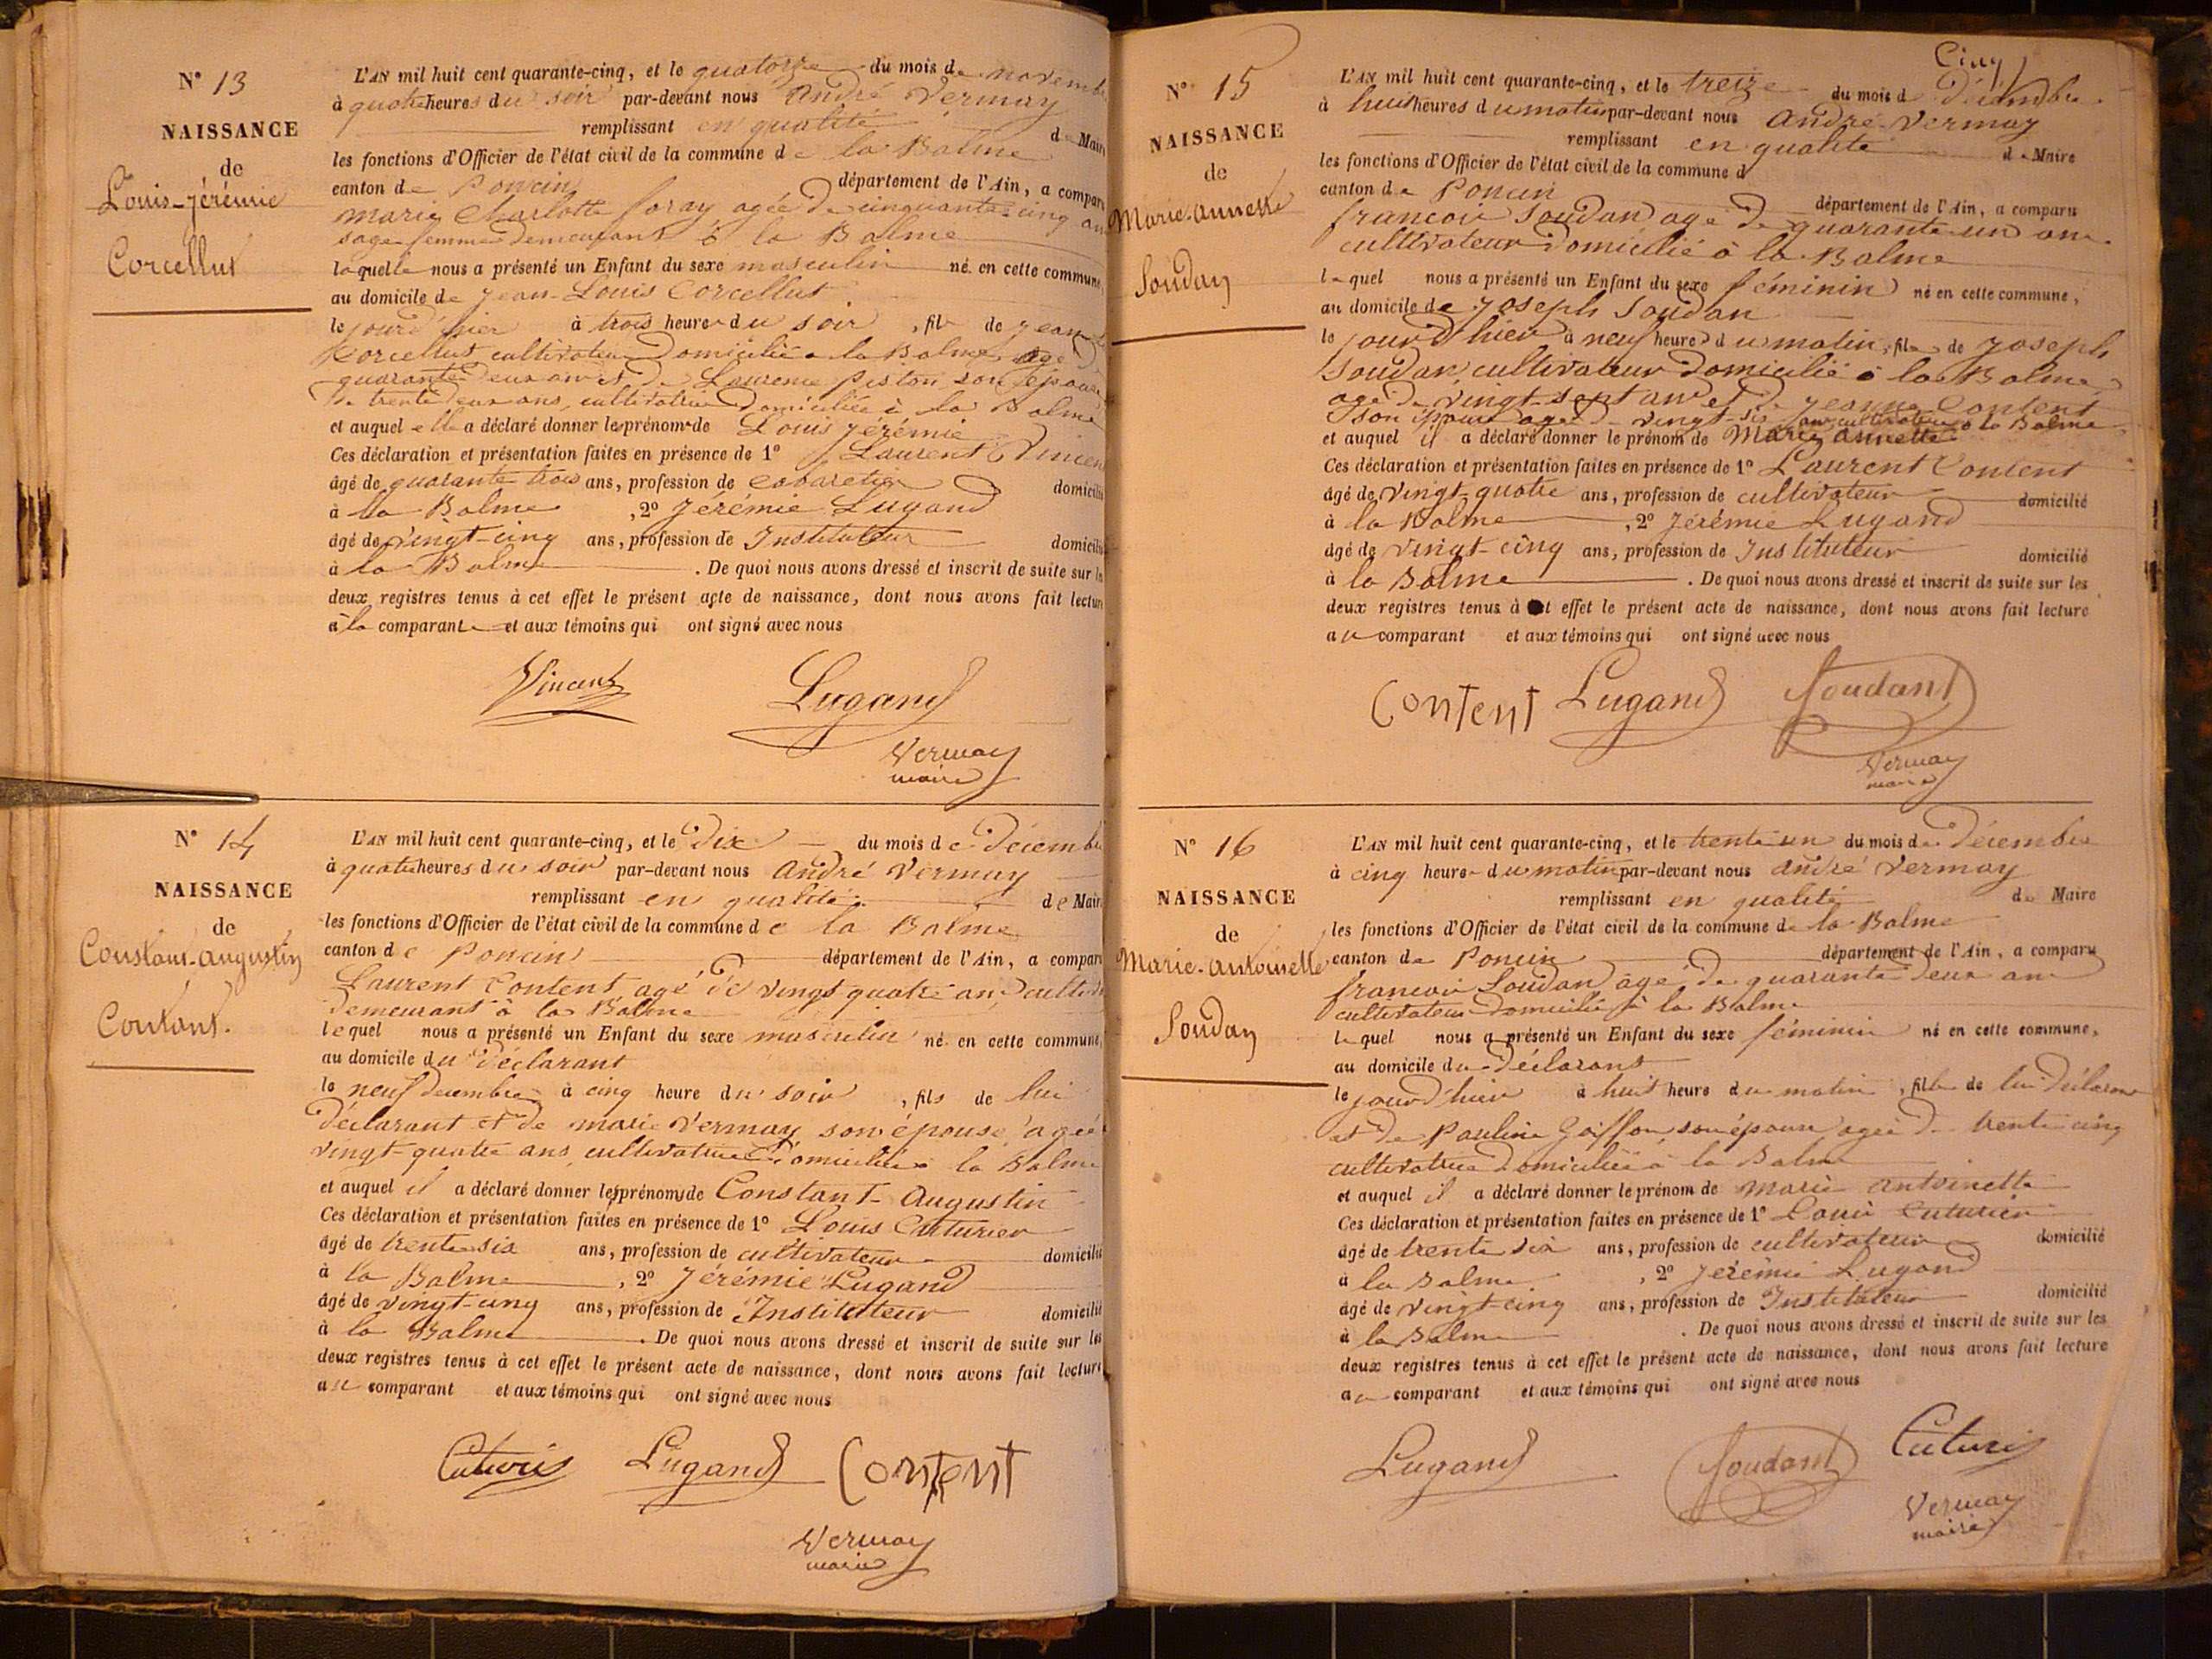 N° 13
NAISSANCE
de
Louis-Jérémie
Corcellut
L'AN mil huit cent quarante-cinq, et le quatorze du mois de novemb
à quatre heures du soir par-devant nous André Vermay
remplissant en qualité de Mair
les fonctions d'Officier de l'état civil de la commune de la Balme
canton de Poncin département de l'Ain, a compar
marie Charlotte foray agée de cinquante-cinq an
sage femme demeurant à la Balme
laquelle nous a présenté un Enfant du sexe masculin né en cette commune,
au domicile de Jean-Louis Corcellut
le jourd'hier à trois heure du soir, fils de Jean
Corcellut cultivateur domicilié a la Balme agé
quarante deux ans et de Laurence Piston son épouse
de trente deux ans, cultivatrice domiciliée à la Balme
et auquel elle a déclaré donner les prénoms de Louis Jérémie
Ces déclaration et présentation faites en présence de 1° Laurent Vincen
âgé de quarante trois ans, profession de cabaretier domicilié
à la Balme, 2° Jérémie Lugand
âgé de vingt-cinq ans, profession de Instituteur domicilié
à la Balme. De quoi nous avons dressé et inscrit de suite sur le
deux registres tenus à cet effet le présent acte de naissance, dont nous avons fait lectur
à la comparante et aux témoins qui ont signé avec nous
Vincent Lugand
Vermay
maire
N° 14
NAISSANCE
de
Constant-Augustin
Contant.
L'AN mil huit cent quarante-cinq, et le Dix du mois de Décemb
à quatre heures du soir par-devant nous André Vermay
remplissant en qualité de Mair
les fonctions d'Officier de l'état civil de la commune de la Balme
canton de Poncin département de l'Ain, a compar
Laurent Content agé de vingt quatre ans cultiv
demeurant à la Balme
lequel nous a présenté un Enfant du sexe masculin né en cette commune,
au domicile du déclarant
le neuf decembre à cinq heure du soir, fils de lui
déclarant et de marie Vermay son épouse, agée
vingt-quatre ans, cultivatrice domiciliée à la Balme
et auquel il a déclaré donner les prénoms de Constant-Augustin
Ces déclaration et présentation faites en présence de 1° Louis Cuturier
âgé de trente six ans, profession de cultivateur domicilié
à la Balme, 2° Jérémie Lugand
âgé de vingt-cinq ans, profession de Instituteur domicilié
à la Balme. De quoi nous avons dressé et inscrit de suite sur les
deux registres tenus à cet effet le présent acte de naissance, dont nous avons fait lecture
au comparant et aux témoins qui ont signé avec nous
Lugand Content
Vermay
maire
Cinq
N° 15
NAISSANCE
de
Marie-annette
Soudan
L'AN mil huit cent quarante-cinq, et le treize du mois de Décembre
à huit heures du matin par-devant nous André Vermay
remplissant en qualité de Maire
les fonctions d'Officier de l'état civil de la commune d
canton de Poncin département de l'Ain, a comparu
francois Soudan agé de quarante un ans
cultivateur domicilié à la Balme
lequel nous a présenté un Enfant du sexe féminin né en cette commune,
au domicile de Joseph Soudan
le jourd'hier à neuf heures du matin, fille de Joseph
Soudan, cultivateur domicilié à la Balme
agé de vingt-sept ans et de Jeanne Content
son épouse agée de vingt-six ans cultivatrice à la Balme
et auquel il a déclaré donner le prénom de Marie annette
Ces déclaration et présentation faites en présence de 1° Laurent Content
âgé de vingt-quatre ans, profession de cultivateur domicilié
à la Balme, 2° Jérémie Lugand
âgé de vingt-cinq ans, profession de Instituteur domicilié
à la Balme. De quoi nous avons dressé et inscrit de suite sur les
deux registres tenus à cet effet le présent acte de naissance, dont nous avons fait lecture
au comparant et aux témoins qui ont signé avec nous
Content Lugand Soudant
Vermay
maire
N° 16
NAISSANCE
de
Marie-Antoinette
Soudan
L'AN mil huit cent quarante-cinq, et le trente un du mois de Décembre
à cinq heure du matin par-devant nous André Vermay
remplissant en qualité de Maire
les fonctions d'Officier de l'état civil de la commune de la Balme
canton de Poncin département de l'Ain, a comparu
francois Soudan agé de quarante deux ans
cultivateur domicilié à la Balme
lequel nous a présenté un Enfant du sexe féminin né en cette commune,
au domicile du déclarant
le jourd'hier à huit heure du matin, fille de lui déclarant
et de Pauline Goiffon son épouse agée de trente cinq
cultivatrice domiciliée à la Balme
et auquel il a déclaré donner le prénom de marie antoinette
Ces déclaration et présentation faites en présence de 1° Louis Cuturier
âgé de trente six ans, profession de cultivateur domicilié
à la Balme, 2° Jérémie Lugand
âgé de vingt-cinq ans, profession de Instituteur domicilié
à la Balme. De quoi nous avons dressé et inscrit de suite sur les
deux registres tenus à cet effet le présent acte de naissance, dont nous avons fait lecture
au comparant et aux témoins qui ont signé avec nous
Lugand Soudant
Vermay
maire